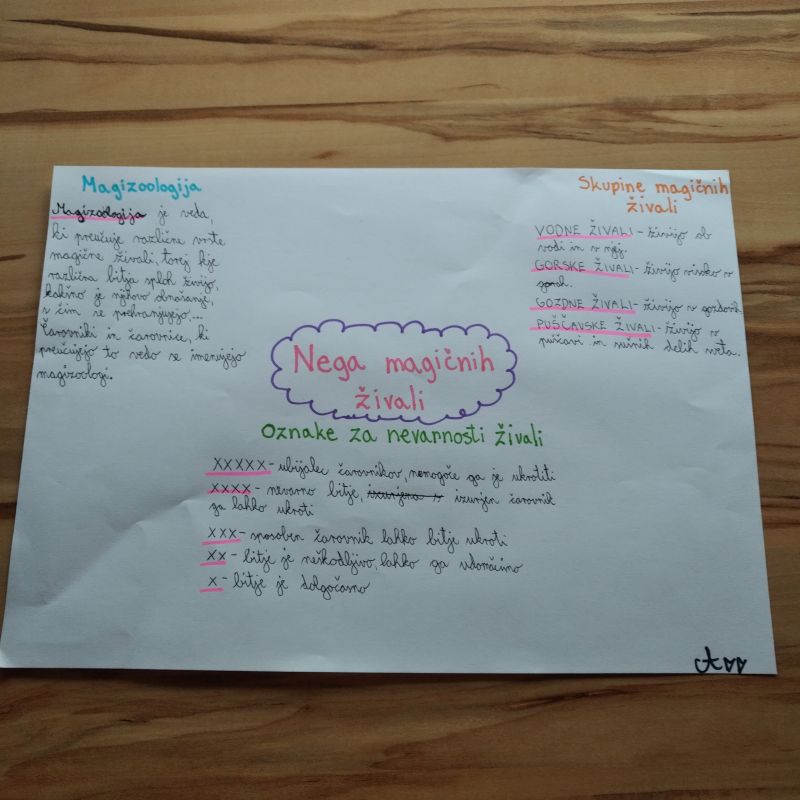 Magizoologija
Magizoologija je veda,
ki preučuje različne vrste
magične živali, torej kje
različna bitja sploh živijo,
kakšno je njihovo obnašanje,
s čim se prehranjujejo,...
Čarovniki in čarovnice, ki
preučujejo to vedo se imenujejo
magizoologi.
Skupine magičnih
živali
VODNE ŽIVALI - živijo ob
vodi in v njej.
GORSKE ŽIVALI - živijo visoko v
gorah.
GOZDNE ŽIVALI - živijo v gozdovih
PUŠČAVSKE ŽIVALI - živijo v
puščavi in sušnih delih sveta.
Nega magičnih
živali
Oznake za nevarnosti živali
XXXXX - ubijalec čarovnikov, nemogoče ga je ukrotiti
XXXX - nevarno bitje, izurjen čarovnik
ga lahko ukroti
XXX - sposoben čarovnik lahko bitje ukroti
XX - bitje je neškodljivo, lahko ga udomačimo
X - bitje je dolgočasno